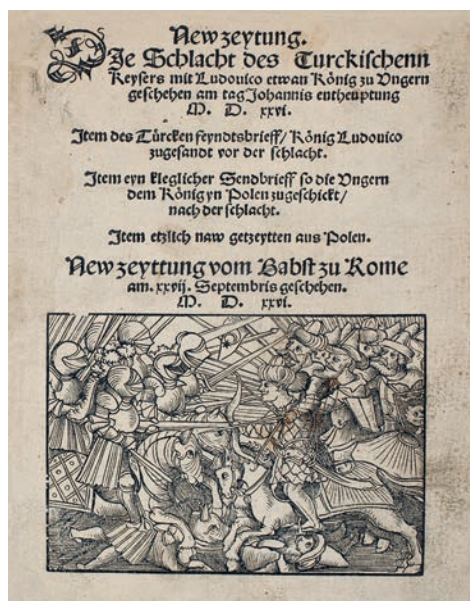 Newzeytung.
DJe Schlacht des Turckischenn
Keysers mit Ludouico etwan König zu Vngern
geschehen am tag Johannis entheuptung
M. D. xxvi.
Jtem des Türcken feyndtsbrieff/ König Ludouico
zugesandt vor der schlacht.
Jtem eyn kleglicher Sendbrieff so die Vngern
dem König yn Polen zugeschickt/
nach der schlacht.
Jtem etzlich naw getzeytten aus Polen.
Newzeyttung vom Babst zu Rome
am. xxvij. Septembris geschehen.
M. D. xxvi.